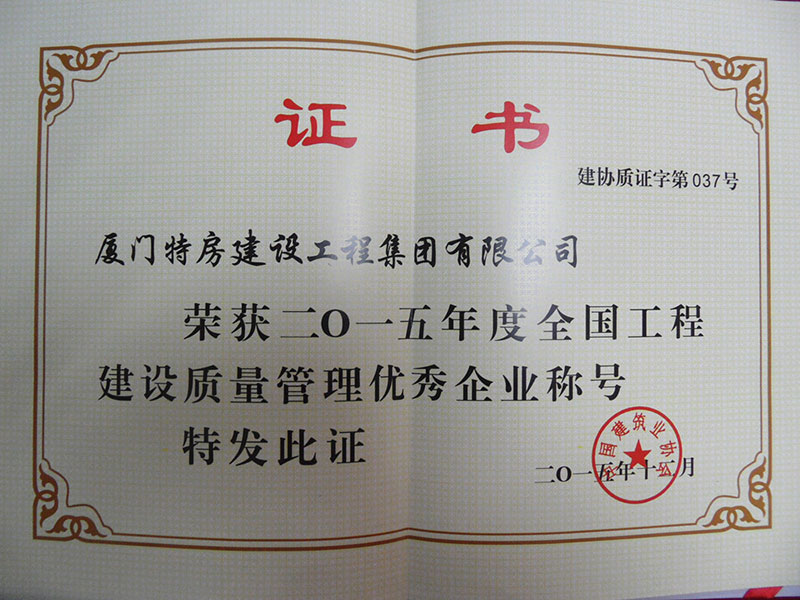 证书
建协质证字第037号
厦门特房建设工程集团有限公司
荣获二〇一五年度全国工程
建设质量管理优秀企业称号
特发此证
中国建筑业协会
二〇一五年十二月